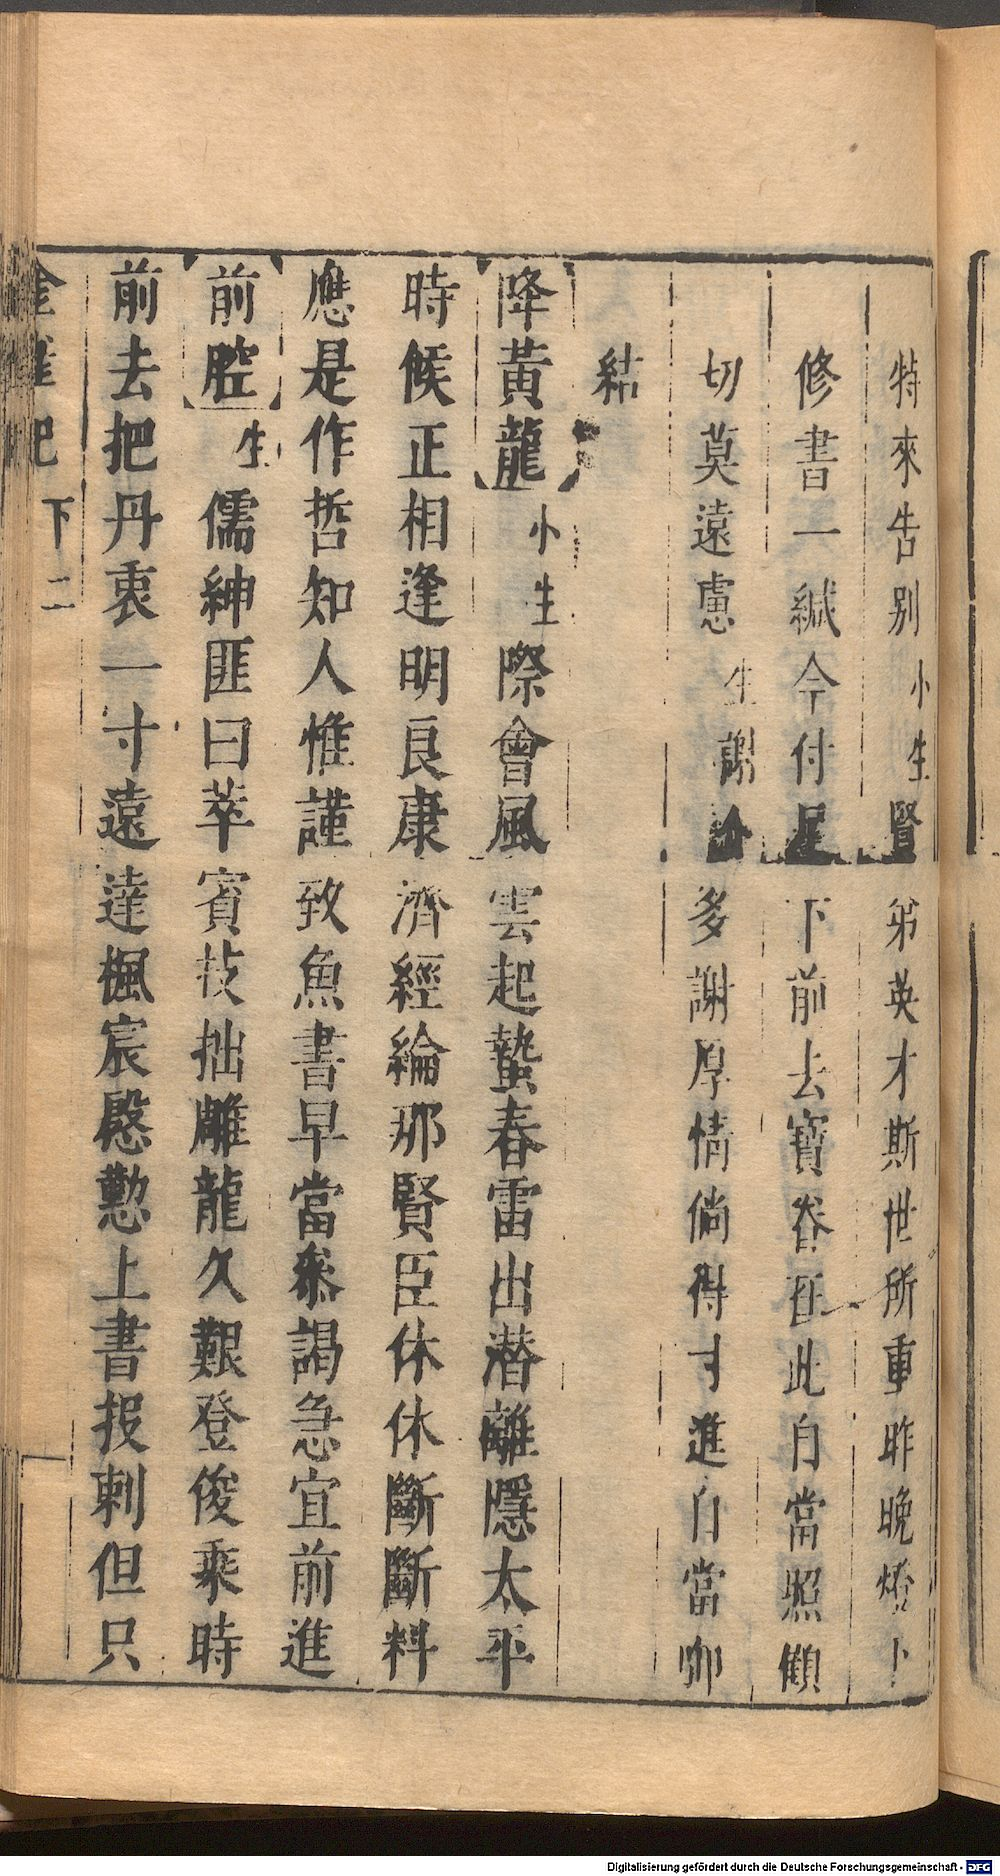 特來告別小生賢弟英才斯世所重昨晚燈下
修書一緘今付足下前去寶眷在此自當照顧
切莫遠慮生謝介多謝厚情倘得寸進自當啣
結
降黃龍小生際會風雲起蟄春雷出潛離隱太平
時候正相逢明良康濟經綸那賢臣休休斷斷料
應是作哲知人惟謹致魚書早當叅謁急宜前進
前腔生儒紳匪曰萃賓技拙雕龍久艱登俊乘時
前去把丹衷一寸遠達楓宸慇懃上書投剌但只
金雀記 下 二
Digitalisierung gefördert durch die Deutsche Forschungsgemeinschaft - DFG